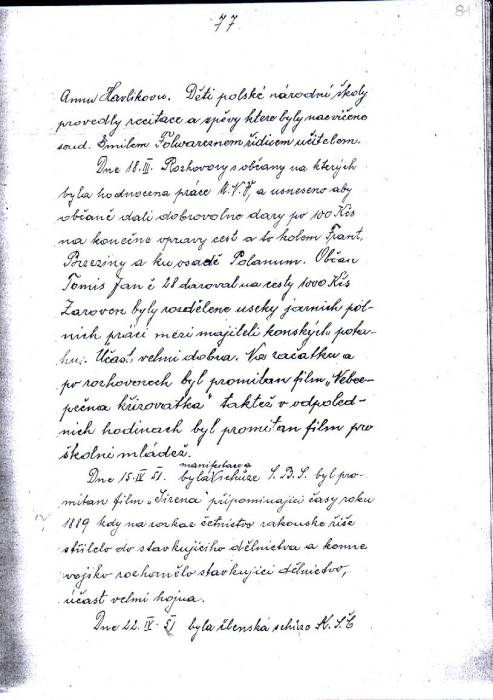 77
81
Annu Havlíkovu. Děti polské národní školy
provedly recitace a zpěvy ktere byly nacvičeno
soud. Emilem Fölwarcznem řídícem učitelom.
Dne 18.III. Rozhovory s občany na kterých
byla hodnocena práce M.N.V, a usneseno aby
občané dali dobrovolno dary po 100 Kčs
na konečne upravy cest a to kolem Frant.
Brzeziny a ku osadě Polanum. Občan
Tomis Jan č 28 daroval na cesty 1000 Kčs
Zaroven byly rozdělene useky jarních pol-
ních práci mezi majiteli konských pota-
hu. Účast velmi dobra. Na začatku a
po rozhovorech byl promitan film „Nebez-
pečna křižovatka" taktež v odpoled-
nich hodinach byl promítan film pro
školni mládež.
manifestace a
Dne 15.IV 51. byla Vschůze S.B.S. byl pro-
mitan film „Sirena" připominajici časy roku
1889 kdy na rozkaz četnictvo rakouske řiše
střilelo do stavkujiciho dělnictva a konne
vojsko rozhanělo stavkujici dělnictvo,
účast velmi hojna.
Dne 22.IV. 51 byla členská schůzo K.S.Č